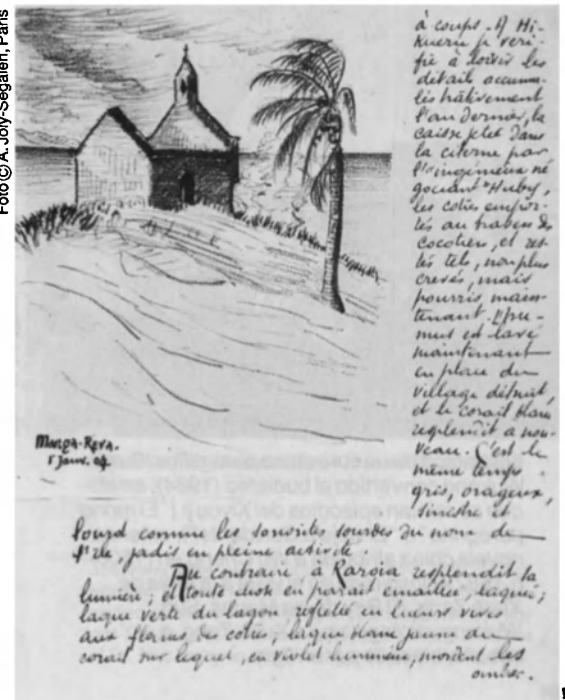 Foto © A. Joly-Segalen, Paris
à coups. A Hi-
kueru je veri-
fie à loisir les
détails accumu-
lés hâtivement
l'an dernier, la
caisse jetée dans
la citerne par
l'ingénieux né
gociant Huby,
les cotres empor-
tés au travers des
cocotiers, et res-
tés tels, non plus
crevés, mais
pourris, main-
tenant.
est lavé
maintenant
en place du
village détruit,
et le corail blanc
resplendit à nou-
veau. C'est le
même temps
gris, orageux,
sinistre et
lourd comme les sonorités sourdes du nom de
l'île, jadis en pleine activité
Au contraire, à Raroia resplendit la
lumière; et toute chose en paraît émaillée, laquée;
laque verte du lagon reflétée en lueurs vives
aux flancs des cotres; laque blanc jaune du
corail sur lequel, en violet lumineux, mordent les
ombres.
Manga-Reva.
1 Janv. 04.